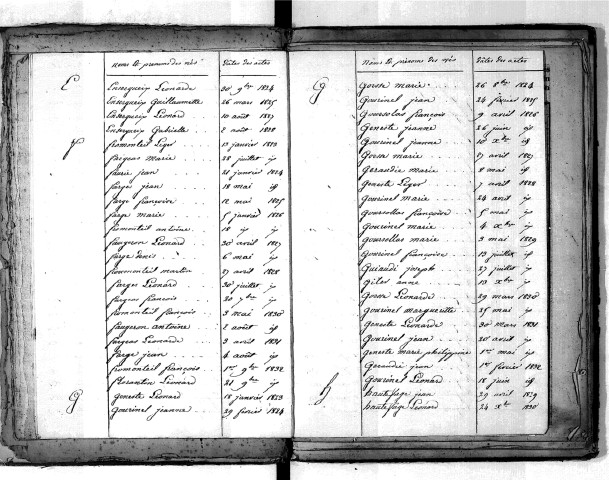 Noms et prenoms des nés Dates des actes
E
Enserguein Léonarde 20 9bre 1824
Enserguein Guillaumette 26 mars 1825
Enserguein Léonard 10 août 1827
Enserguein Gabrielle 2 août 1828
F
fromonteil Léger 13 janvier 1823
fargeas marie 28 juillet id
faurie jean 21 janvier 1824
farge jean 18 mai id
farge françoise 12 mai 1825
farge marie 5 janvier 1826
fromonteil antoine 18 id id
faugeron Léonard 20 avril 1827
farge denis 6 mai id
fromonteil martin 27 avril 1828
farges Léonard 20 juillet id
fargeas françois 20 7bre id
fromonteil françois 3 mai 1830
faugeron antoine 1 août id
fargeas Léonarde 3 avril 1831
farge jean 4 août id
fromonteil françois 1er 9bre 1832
florentin Léonard 21 9bre id
G
geneste Léonard 18 janvier 1823
Gourinel jeanne 29 février 1824
Noms et prénoms des nés Dates des actes
G
Gorse marie 26 8bre 1824
Gourinel jean 24 février 1825
Gourselas françois 9 avril 1826
Geneste jeanne 26 juin id
Gourinel jeanne 10 Xbre id
Gorse marie 27 avril 1827
Geraudie marie 8 mai id
Geneste Léger 7 avril 1828
Gourinel marie 24 avril id
Goursollas françoise 5 mai id
Gourinel marie 4 Xbre id
Goursollas marie 3 mai 1829
Gourinel françoise 13 juillet id
Guiaudi joseph 27 juillet id
giles anne 13 Xbre id
Gorse Léonarde 29 mars 1830
Gourinel marguerite 25 mai id
Geneste Léonarde 30 mars 1831
Gourinel jean 20 avril id
Geneste marie philippine 1er mai id
Geraudie jean 1er février 1832
Gourinel Léonard 18 juin id
h
hautefage jean 29 avril 1829
hautefage Léonard 24 Xbre 1830